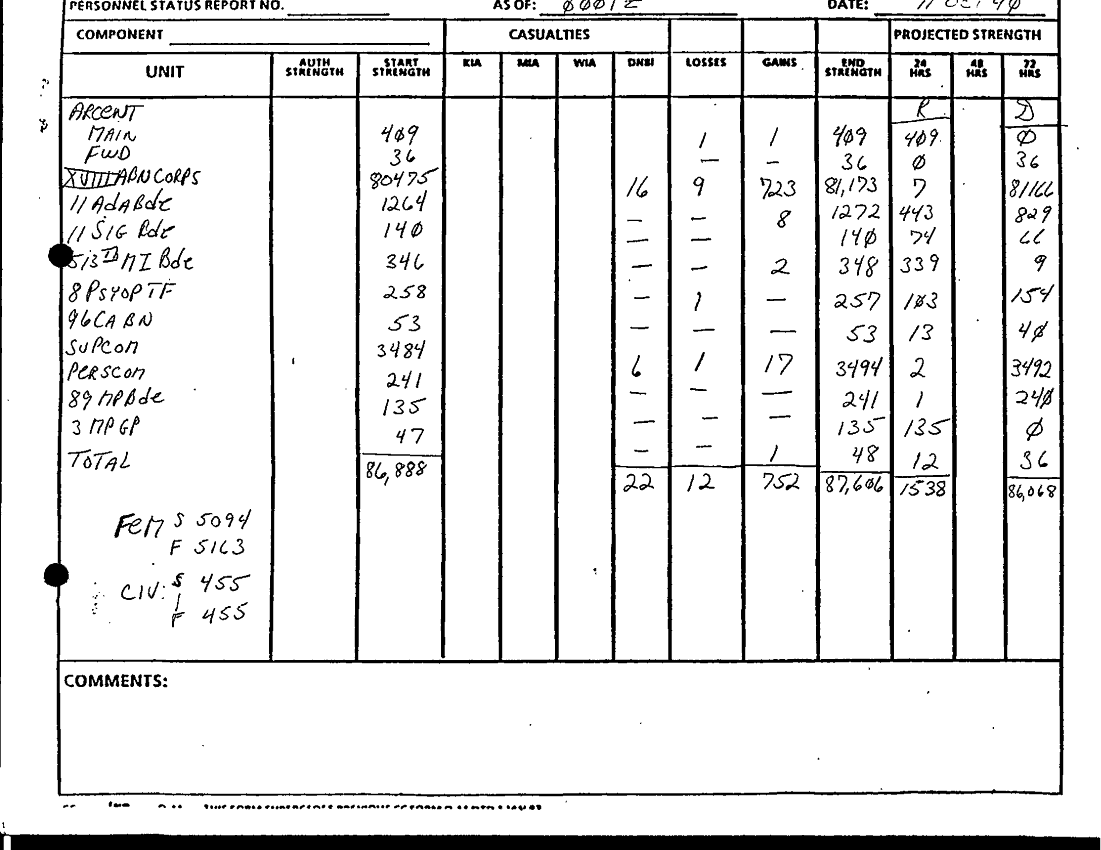 PERSONNEL STATUS REPORT NO. AS OF: 0001Z DATE: 11 OCT 90
COMPONENT CASUALTIES PROJECTED STRENGTH
UNIT AUTH STRENGTH START STRENGTH KIA MIA WIA DNBI LOSSES GAINS END STRENGTH 24 HRS 48 HRS 72 HRS
ARCENT R D
MAIN 4Ø9 1 1 4Ø9 4Ø9 Ø
FWD 36 — – 36 Ø 36
XVIII ABN CORPS 80475 16 9 723 81,173 7 81166
11 AdA Bde 1264 — — 8 1272 443 829
11 SIG Bde 14Ø — — 14Ø 74 66
513th MI Bde 346 — — 2 348 339 9
8 PSYOP TF 258 — 1 — 257 1Ø3 154
96 CA BN 53 — — — 53 13 4Ø
SUPCOM 3484 6 1 17 3494 2 3492
PERSCOM 241 — — — 241 1 24Ø
89 MP Bde 135 — — — 135 135 Ø
3 MP GP 47 — — 1 48 12 36
TOTAL 86,888 22 12 752 87,6Ø6 1538 86,068
FEM S 5094
F 5163
CIV: S 455
F 455
COMMENTS: